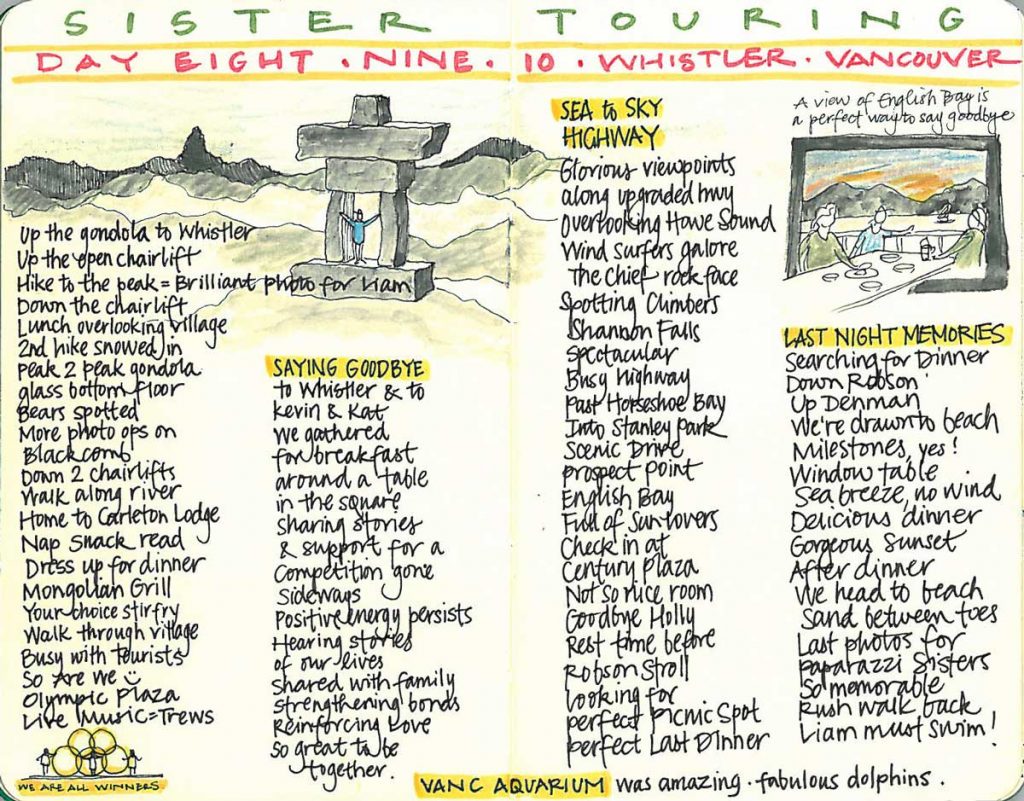 SISTER TOURING
DAY EIGHT · NINE · 10 · WHISTLER · VANCOUVER
Up the gondola to Whistler
Up the open chairlift
Hike to the peak = Brilliant photo for Liam
Down the chairlift
Lunch overlooking village
2nd hike snowed in
Peak 2 peak gondola
glass bottom floor
Bears spotted
More photo ops on
Blackcomb
Down 2 chairlifts
Walk along river
Home to Carleton Lodge
Nap snack read
Dress up for dinner
Mongolian Grill
Your choice stirfry
Walk through village
Busy with tourists
So Are we
Olympic Plaza
Live Music = Trews
WE ARE ALL WINNERS
SAYING GOODBYE
to Whistler & to
Kevin & Kat
We gathered
for breakfast
around a table
in the square
sharing stories
& support for a
Competition gone
sideways
Positive energy persists
Hearing stories
of our lives
shared with family
strengthening bonds
Reinforcing Love
So great to be
together.
SEA to SKY
HIGHWAY
Glorious viewpoints
along upgraded hwy
Overlooking Howe Sound
Wind surfers galore
The Chief rock face
Spotting Climbers
Shannon Falls
Spectacular
Busy highway
Past Horseshoe Bay
Into Stanley Park
Scenic Drive
prospect point
English Bay
Full of Sunlovers
Check in at
Century Plaza
Not so nice room
Goodbye Holly
Rest time before
Robson Stroll
Looking for
perfect Picnic Spot
perfect Last Dinner
A view of English Bay is
a perfect way to say goodbye
LAST NIGHT MEMORIES
Searching for Dinner
Down Robson
Up Denman
We're drawn to beach
Milestones, yes!
Window table
Sea breeze, no wind
Delicious dinner
Gorgeous Sunset
After dinner
We head to beach
Sand between toes
Last photos for
paparazzi Sisters
So memorable
Rush walk back
Liam must swim!
VANC AQUARIUM was amazing · fabulous dolphins.